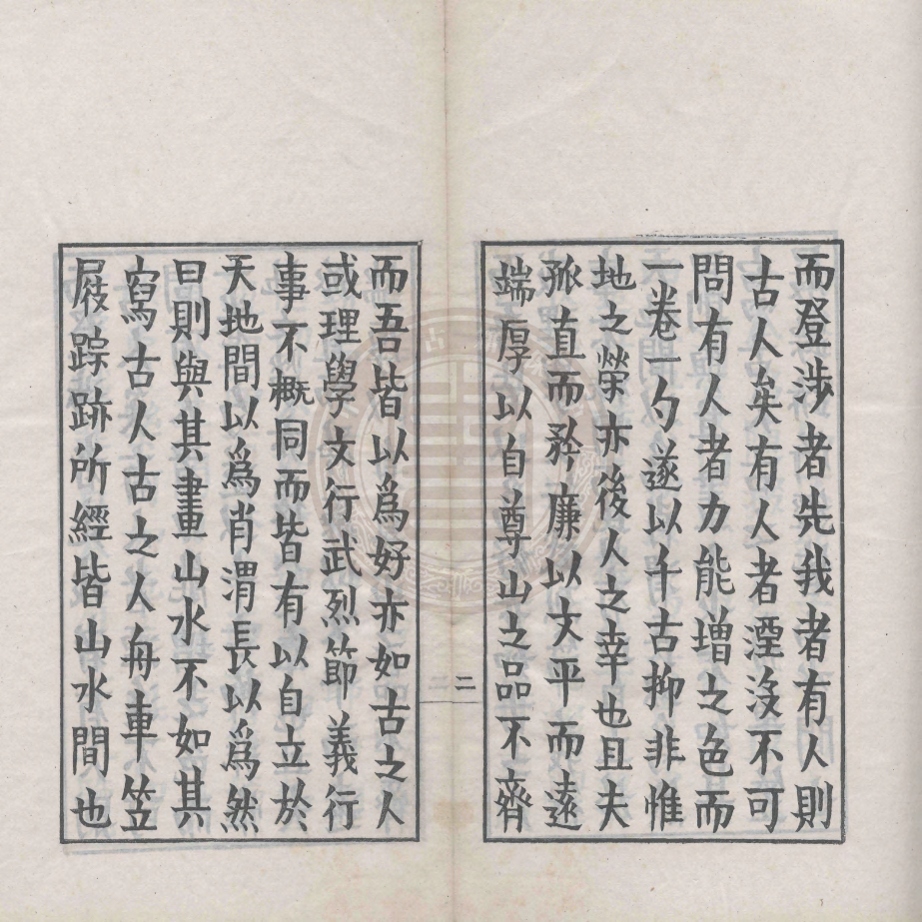 而登涉者先我者有人則
古人矣有人者湮沒不可
問有人者力能増之色而
一卷一勺遂以千古抑非惟
地之榮亦後人之幸也且夫
孤直而矜廉以文平而遠
端厚以自尊山之品不齊
二
而吾皆以爲好亦如古之人
或理學文行武烈節義行
事不概同而皆有以自立於
天地間以爲肖渭長以爲然
曰則與其畫山水不如其
寫古人古之人舟車笠
屐踪跡所經皆山水間也